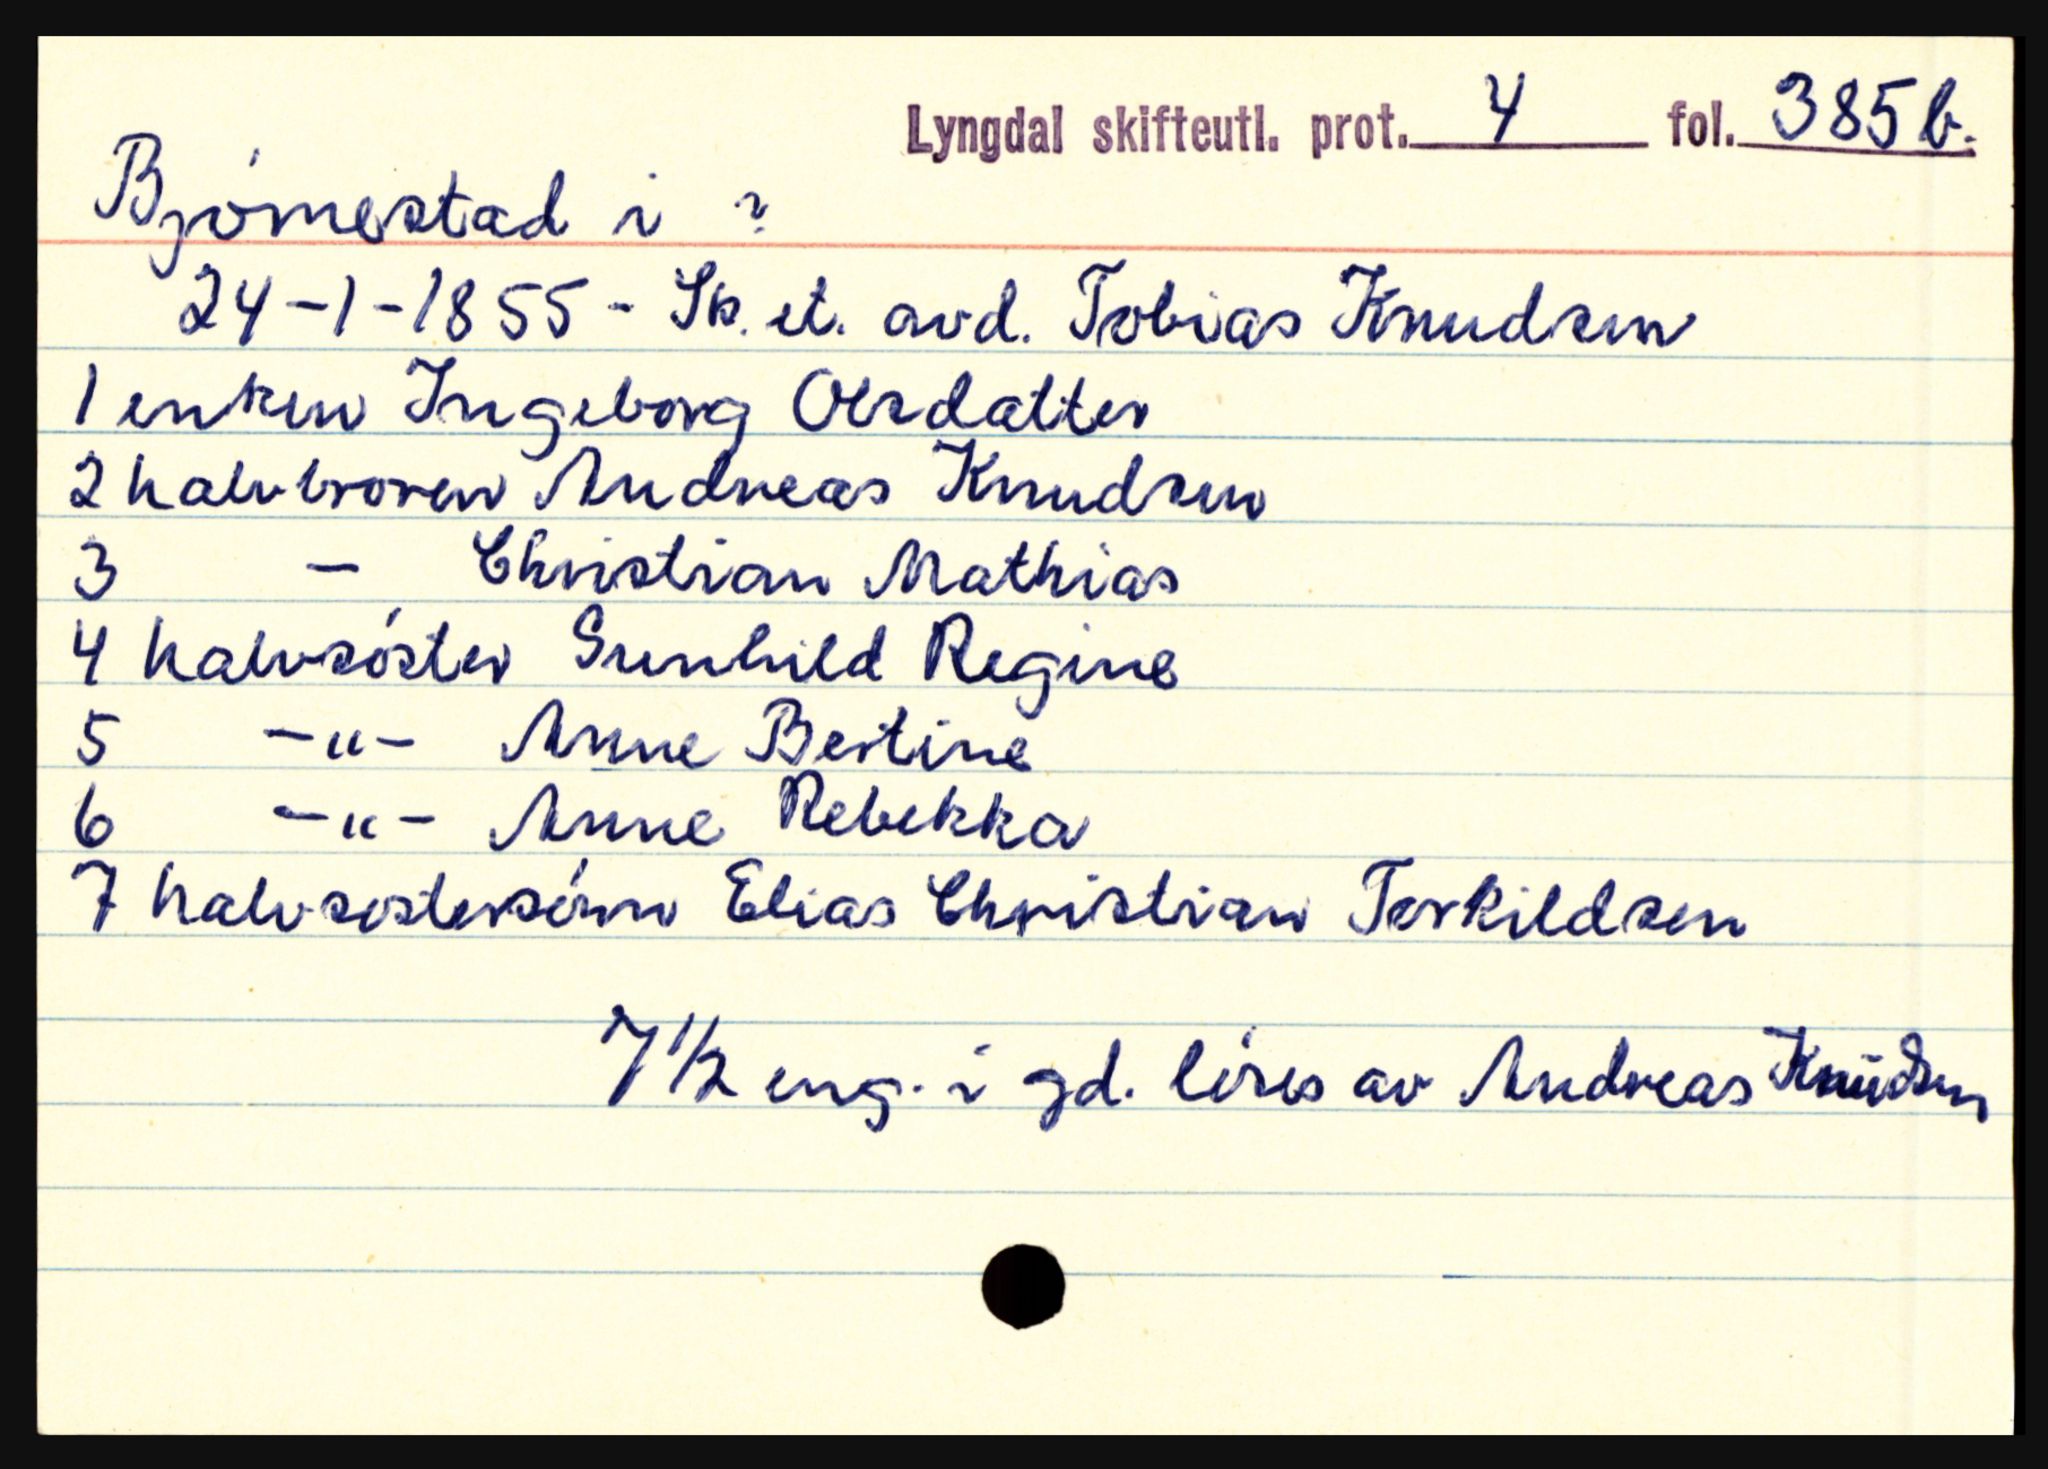 Lyngdal skifteutl. prot. 4 fol. 385 b.
Bjørnestad i ?
24-1-1855 - Sk. et. avd. Tobias Knudsen
1 enken Ingeborg Olsdatter
2 halvbroren Andreas Knudsen
3 - Christian Mathias
4 halvsøster Gunhild Regine
5 -"- Anne Bertine
6 -"- Anne Rebekka
7 halvsøstersønn Elias Christian Torkildsen
7 1/2 eng. i gd. löses av Andreas Knudsen